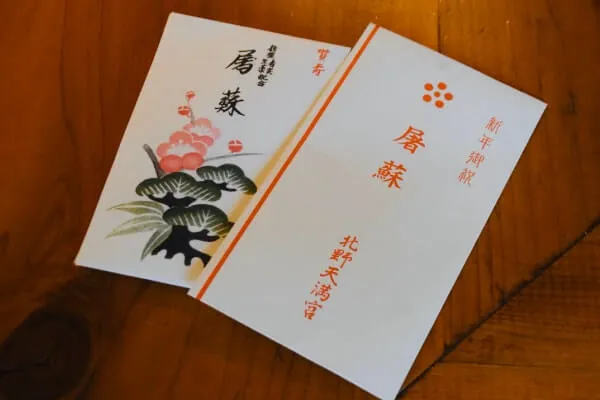 屠蘇
新年御祝
屠蘇
北野天満宮